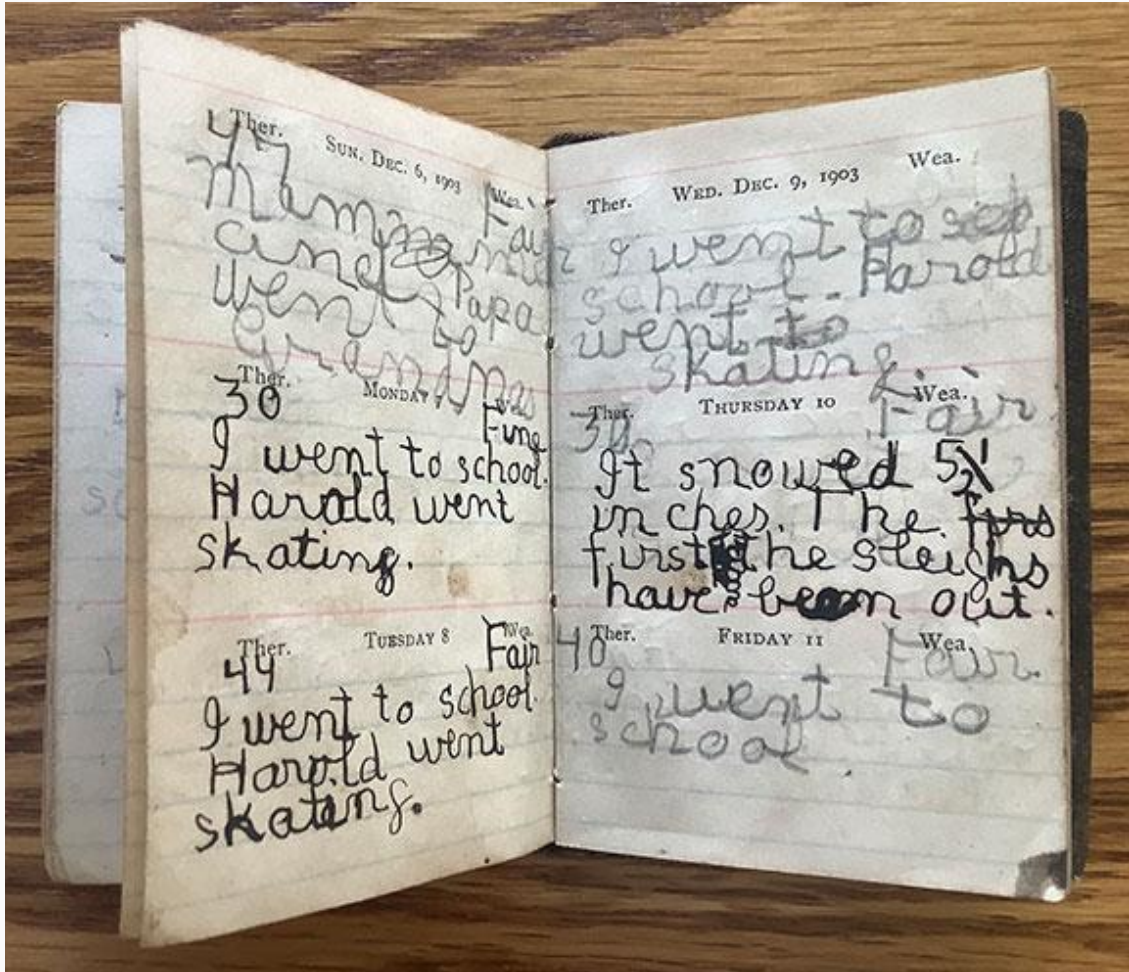 Ther. SUN. DEC. 6, 1903 Wea.
47 Fair
Mamma
and Papa
went to
Grandmas
Ther. MONDAY 7 Wea.
30 Fine
I went to school.
Harold went
skating.
Ther. TUESDAY 8 Wea.
44 Fair
I went to school.
Harold went
skating.
Ther. WED. DEC. 9, 1903 Wea.
I went to
school. Harold
went to
skating.
Ther. THURSDAY 10 Wea.
30 Fair.
It snowed 5
inches. The firs
first the sleighs
have been out.
Ther. FRIDAY 11 Wea.
40 Fair.
I went to
school